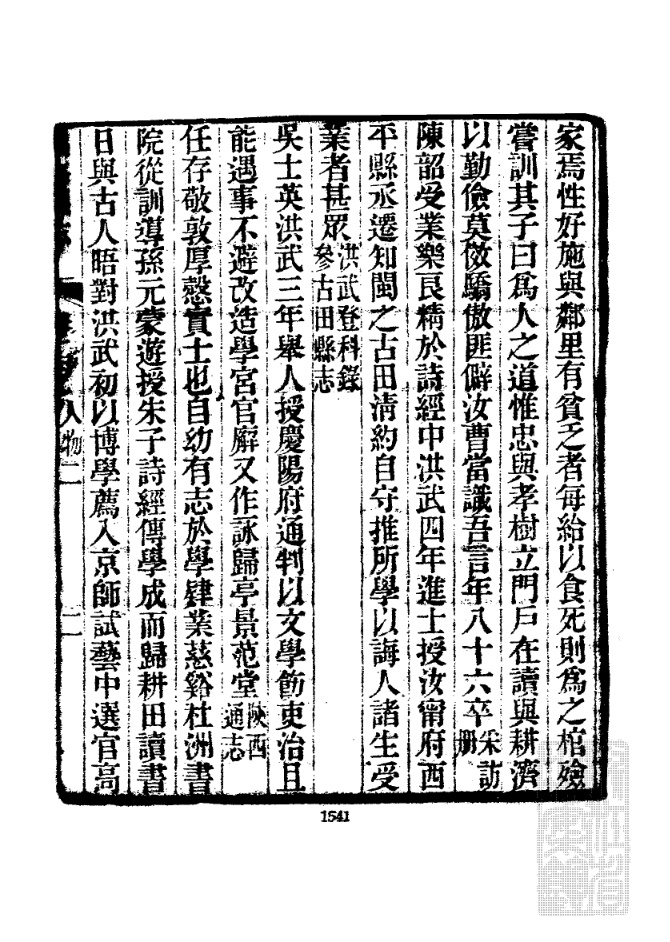 家焉性好施與鄰里有貧乏者每給以食死則爲之棺殮
嘗訓其子曰爲人之道惟忠與孝樹立門戶在讀與耕濟
以勤儉莫傚驕傲匪僻汝曹當識吾言年八十六卒采訪冊
陳韶受業樂良精於詩經中洪武四年進士授汝甯府西
平縣丞遷知閩之古田淸約自守推所學以誨人諸生受
業者甚眾洪武登科錄參古田縣志
吳士英洪武三年舉人授慶陽府通判以文學飭吏治且
能遇事不避改造學宮官廨又作詠歸亭景范堂陜西通志
任存敬敦厚慤實士也自幼有志於學肄業慈谿杜洲書
院從訓導孫元蒙遊授朱子詩經傳學成而歸耕田讀書
日與古人晤對洪武初以博學薦入京師試藝中選官高
人物二
二
1541